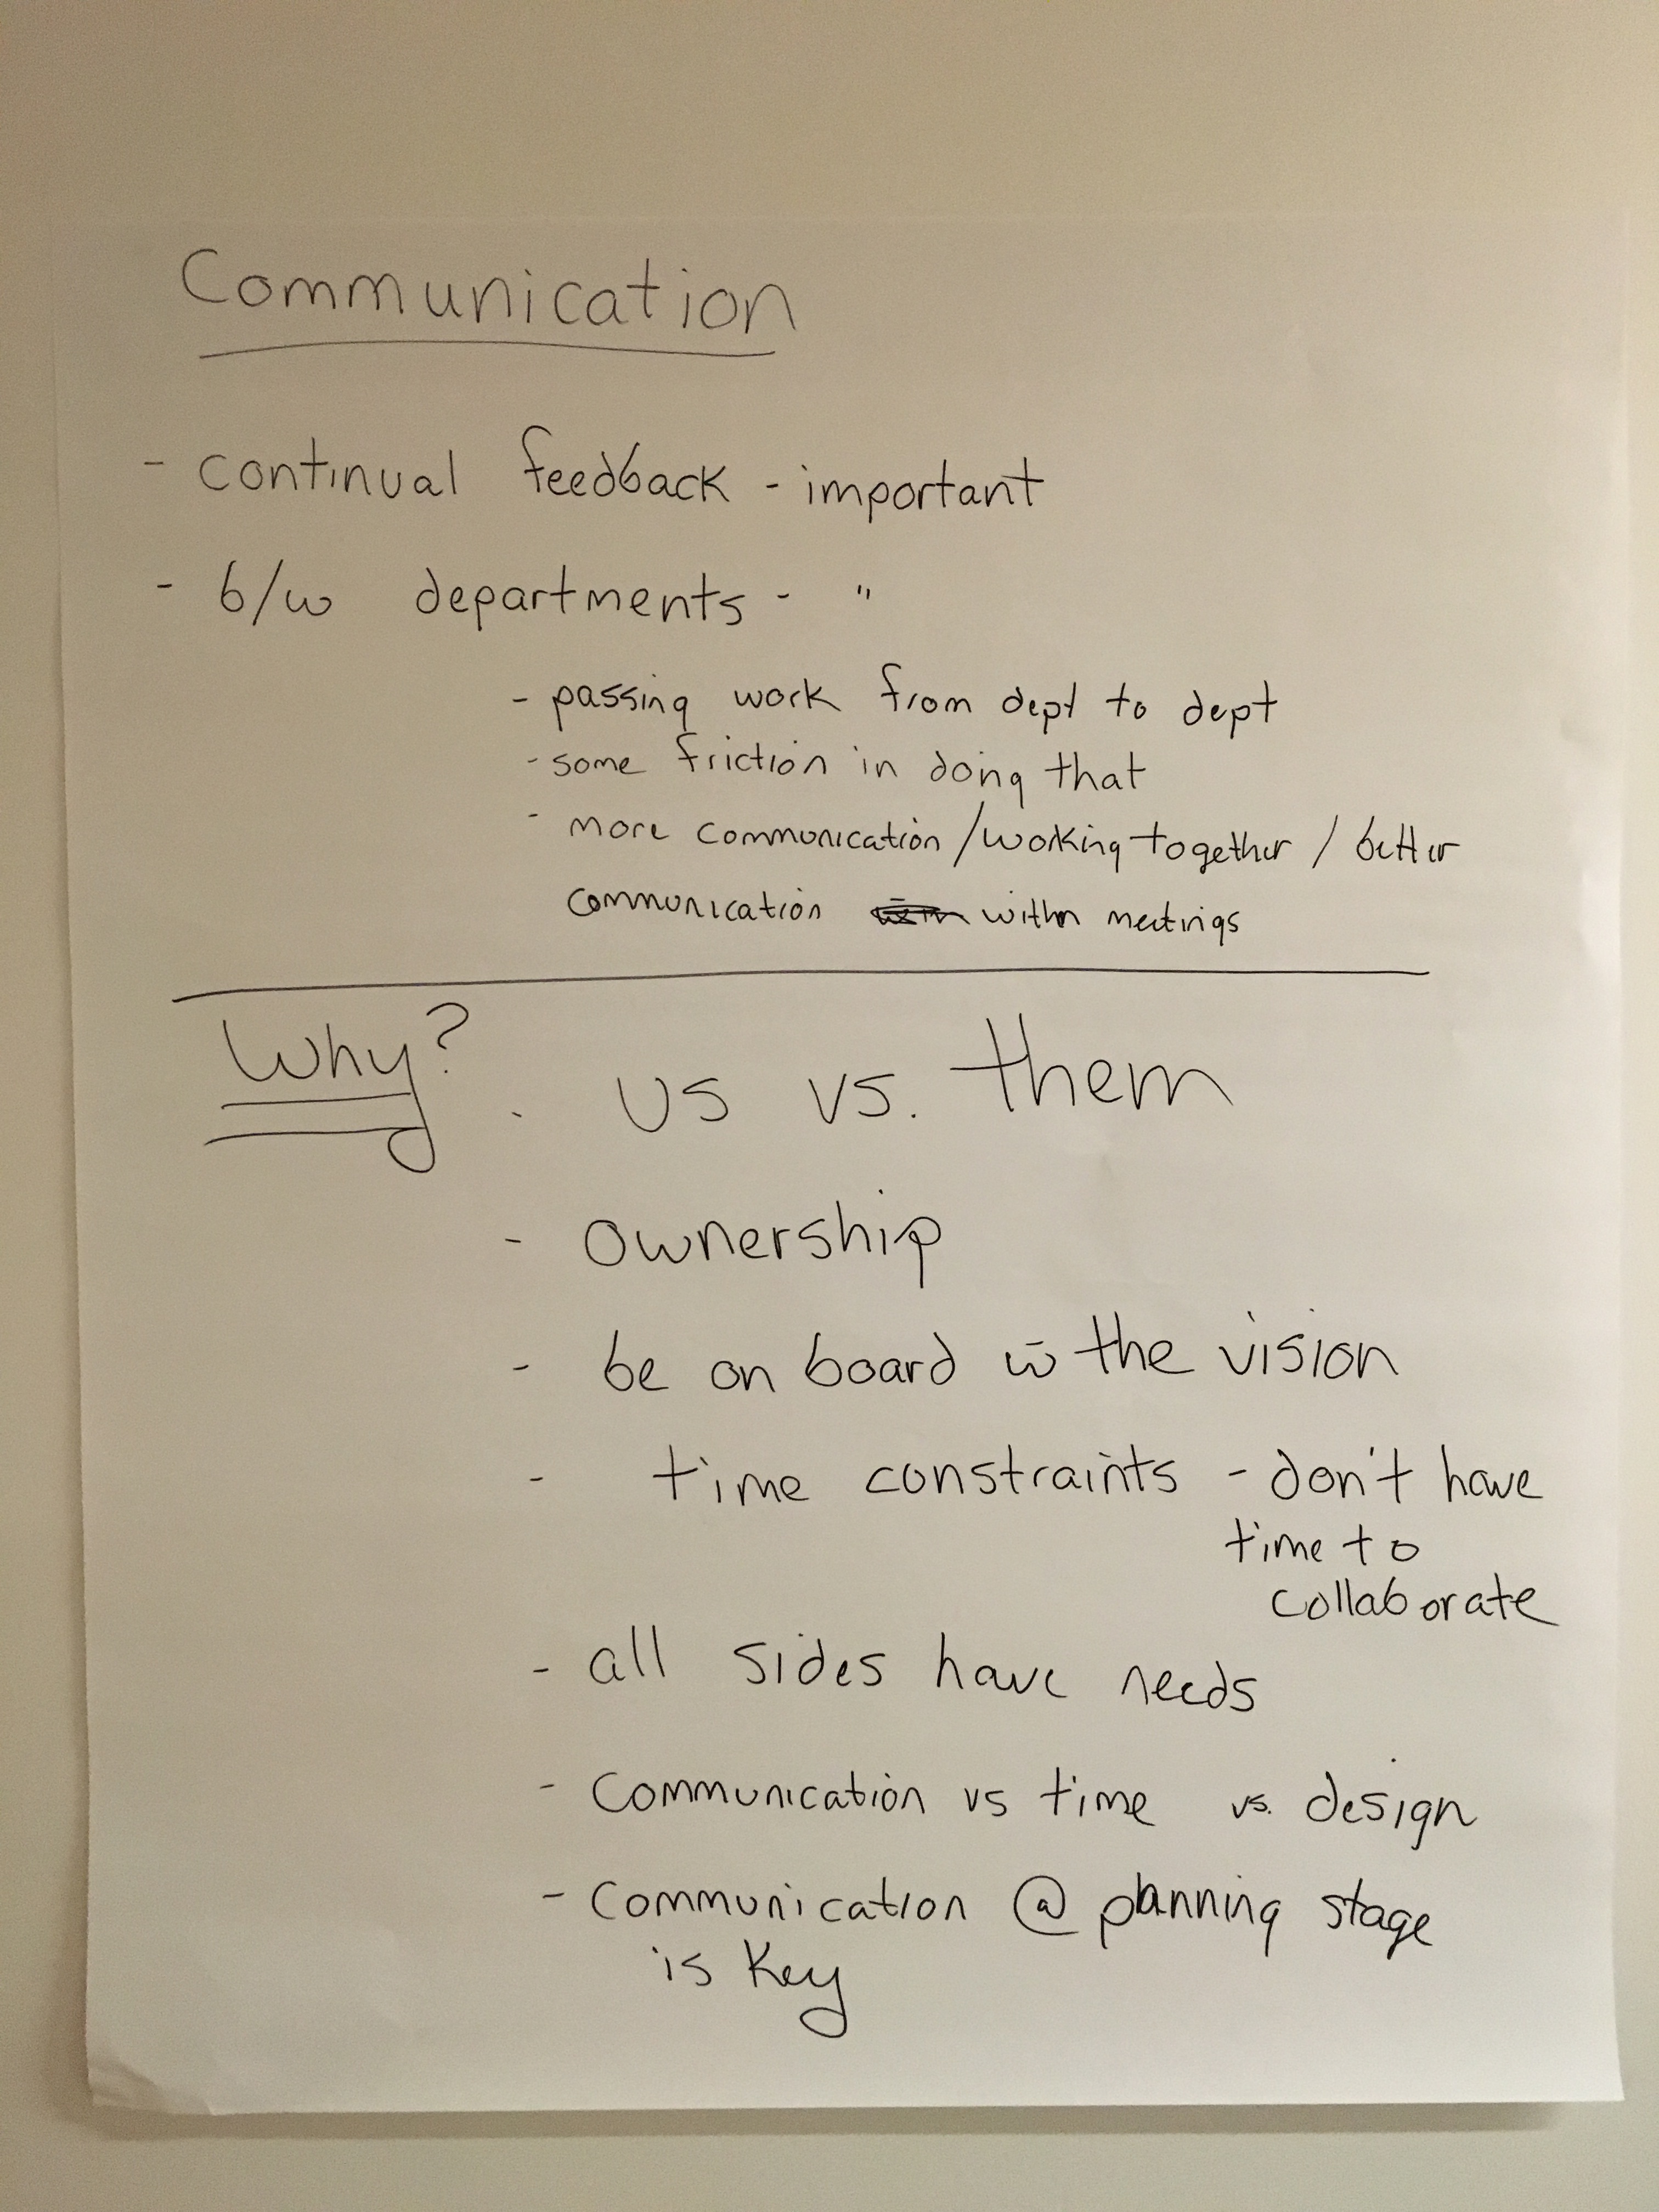 Communication
- continual feedback - important
- b/w departments - "
- passing work from dept to dept
- some friction in doing that
- more communication / working together / better
communication within meetings
Why?
- us vs. them
- ownership
- be on board w̄ the vision
- time constraints - don't have
time to
collaborate
- all sides have needs
- communication vs time vs. design
- communication @ planning stage
is key